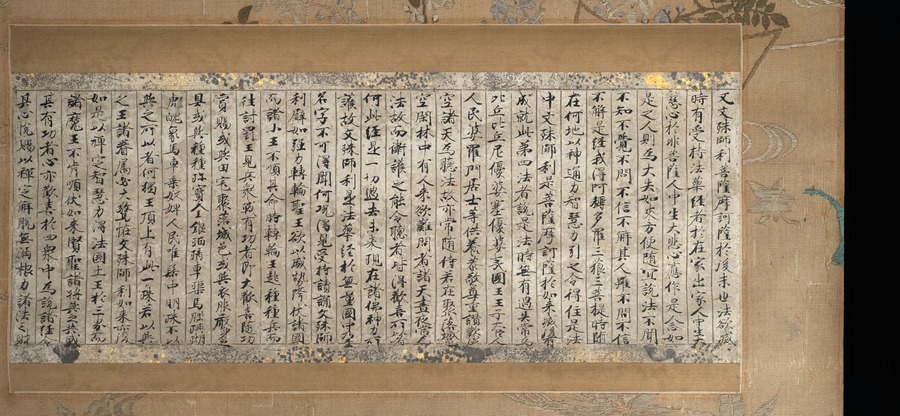 又文殊師利菩薩摩訶薩於後末世法欲滅
時有受持法華經者於在家出家人中生大
慈心於非菩薩人中生大悲心應作是念如
是之人則為大失如來方便隨宜說法不聞
不知不覺不問不信不解其人雖不問不信
不解是經我得阿耨多羅三藐三菩提時隨
在何地以神通力智慧力引之令得住是法
中文殊師利是菩薩摩訶薩於如來滅後有
成就此第四法者說是法時無有過失常為
比丘比丘尼優婆塞優婆夷國王王子大臣
人民婆羅門居士等供養恭敬尊重讚歎虛
空諸天為聽法故亦常隨侍若在聚落城邑
空閑林中有人來欲難問者諸天晝夜常為
法故而衛護之能令聽者皆得歡喜所以者
何此經是一切過去未來現在諸佛神力所
護故文殊師利是法華經於無量國中乃至
名字不可得聞何況得見受持讀誦文殊師
利譬如強力轉輪聖王欲以威勢降伏諸國
而諸小王不順其命時轉輪王起種種兵而
往討罰王見兵眾戰有功者即大歡喜隨功
賞賜或與田宅聚落城邑或與衣服嚴身之
具或與種種珍寶金銀琉璃車渠馬腦珊瑚
虎魄象馬車乘奴婢人民唯髻中明珠不以
與之所以者何獨王頂上有此一珠若以與
之王諸眷屬必大驚怪文殊師利如來亦復
如是以禪定智慧力得法國土王於三界而
諸魔王不肯順伏如來賢聖諸將與之共戰
其有功者心亦歡喜於四眾中為說諸經令
其心悅賜以禪定解脫無漏根力諸法之財